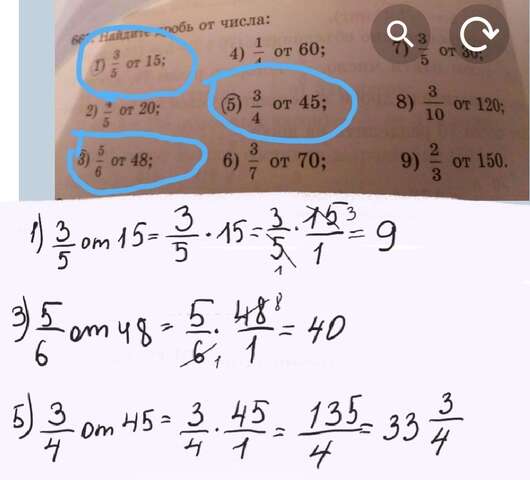 Найдите дробь от числа:
1) 3/5 от 15; 4) 1/ от 60; 7) 3/5 от 30;
2) /5 от 20; 5) 3/4 от 45; 8) 3/10 от 120;
3) 5/6 от 48; 6) 3/7 от 70; 9) 2/3 от 150.
1) 3/5 от 15 = 3/5 · 15 = 3/5 1 · 15 3/1 = 9
3) 5/6 от 48 = 5/6 1 · 48 8/1 = 40
5) 3/4 от 45 = 3/4 · 45/1 = 135/4 = 33 3/4